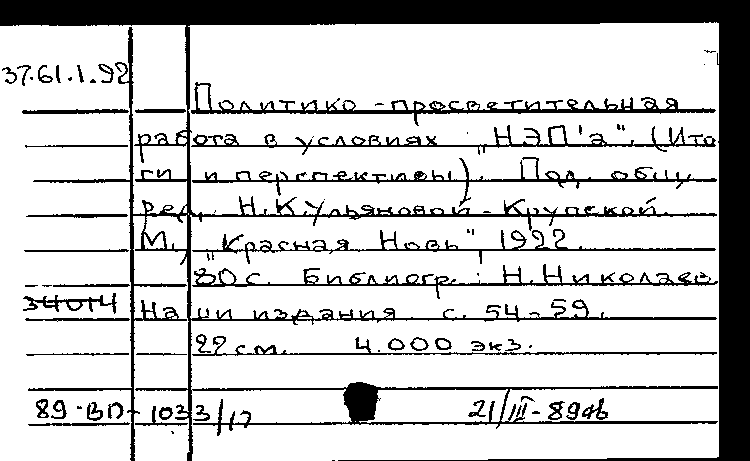 37.61.1.92
Политико-просветительная
работа в условиях „НЭП'а". (Ито
ги и перспективы). Под общ.
ред. Н.К.Ульяновой-Крупской.
М., „Красная Новь", 1922.
80 с. Библиогр.: Н.Николаев
34014 На ши издания с. 54-59.
22 см. 4.000 экз.
89-ВП-1033/17 21/III-89